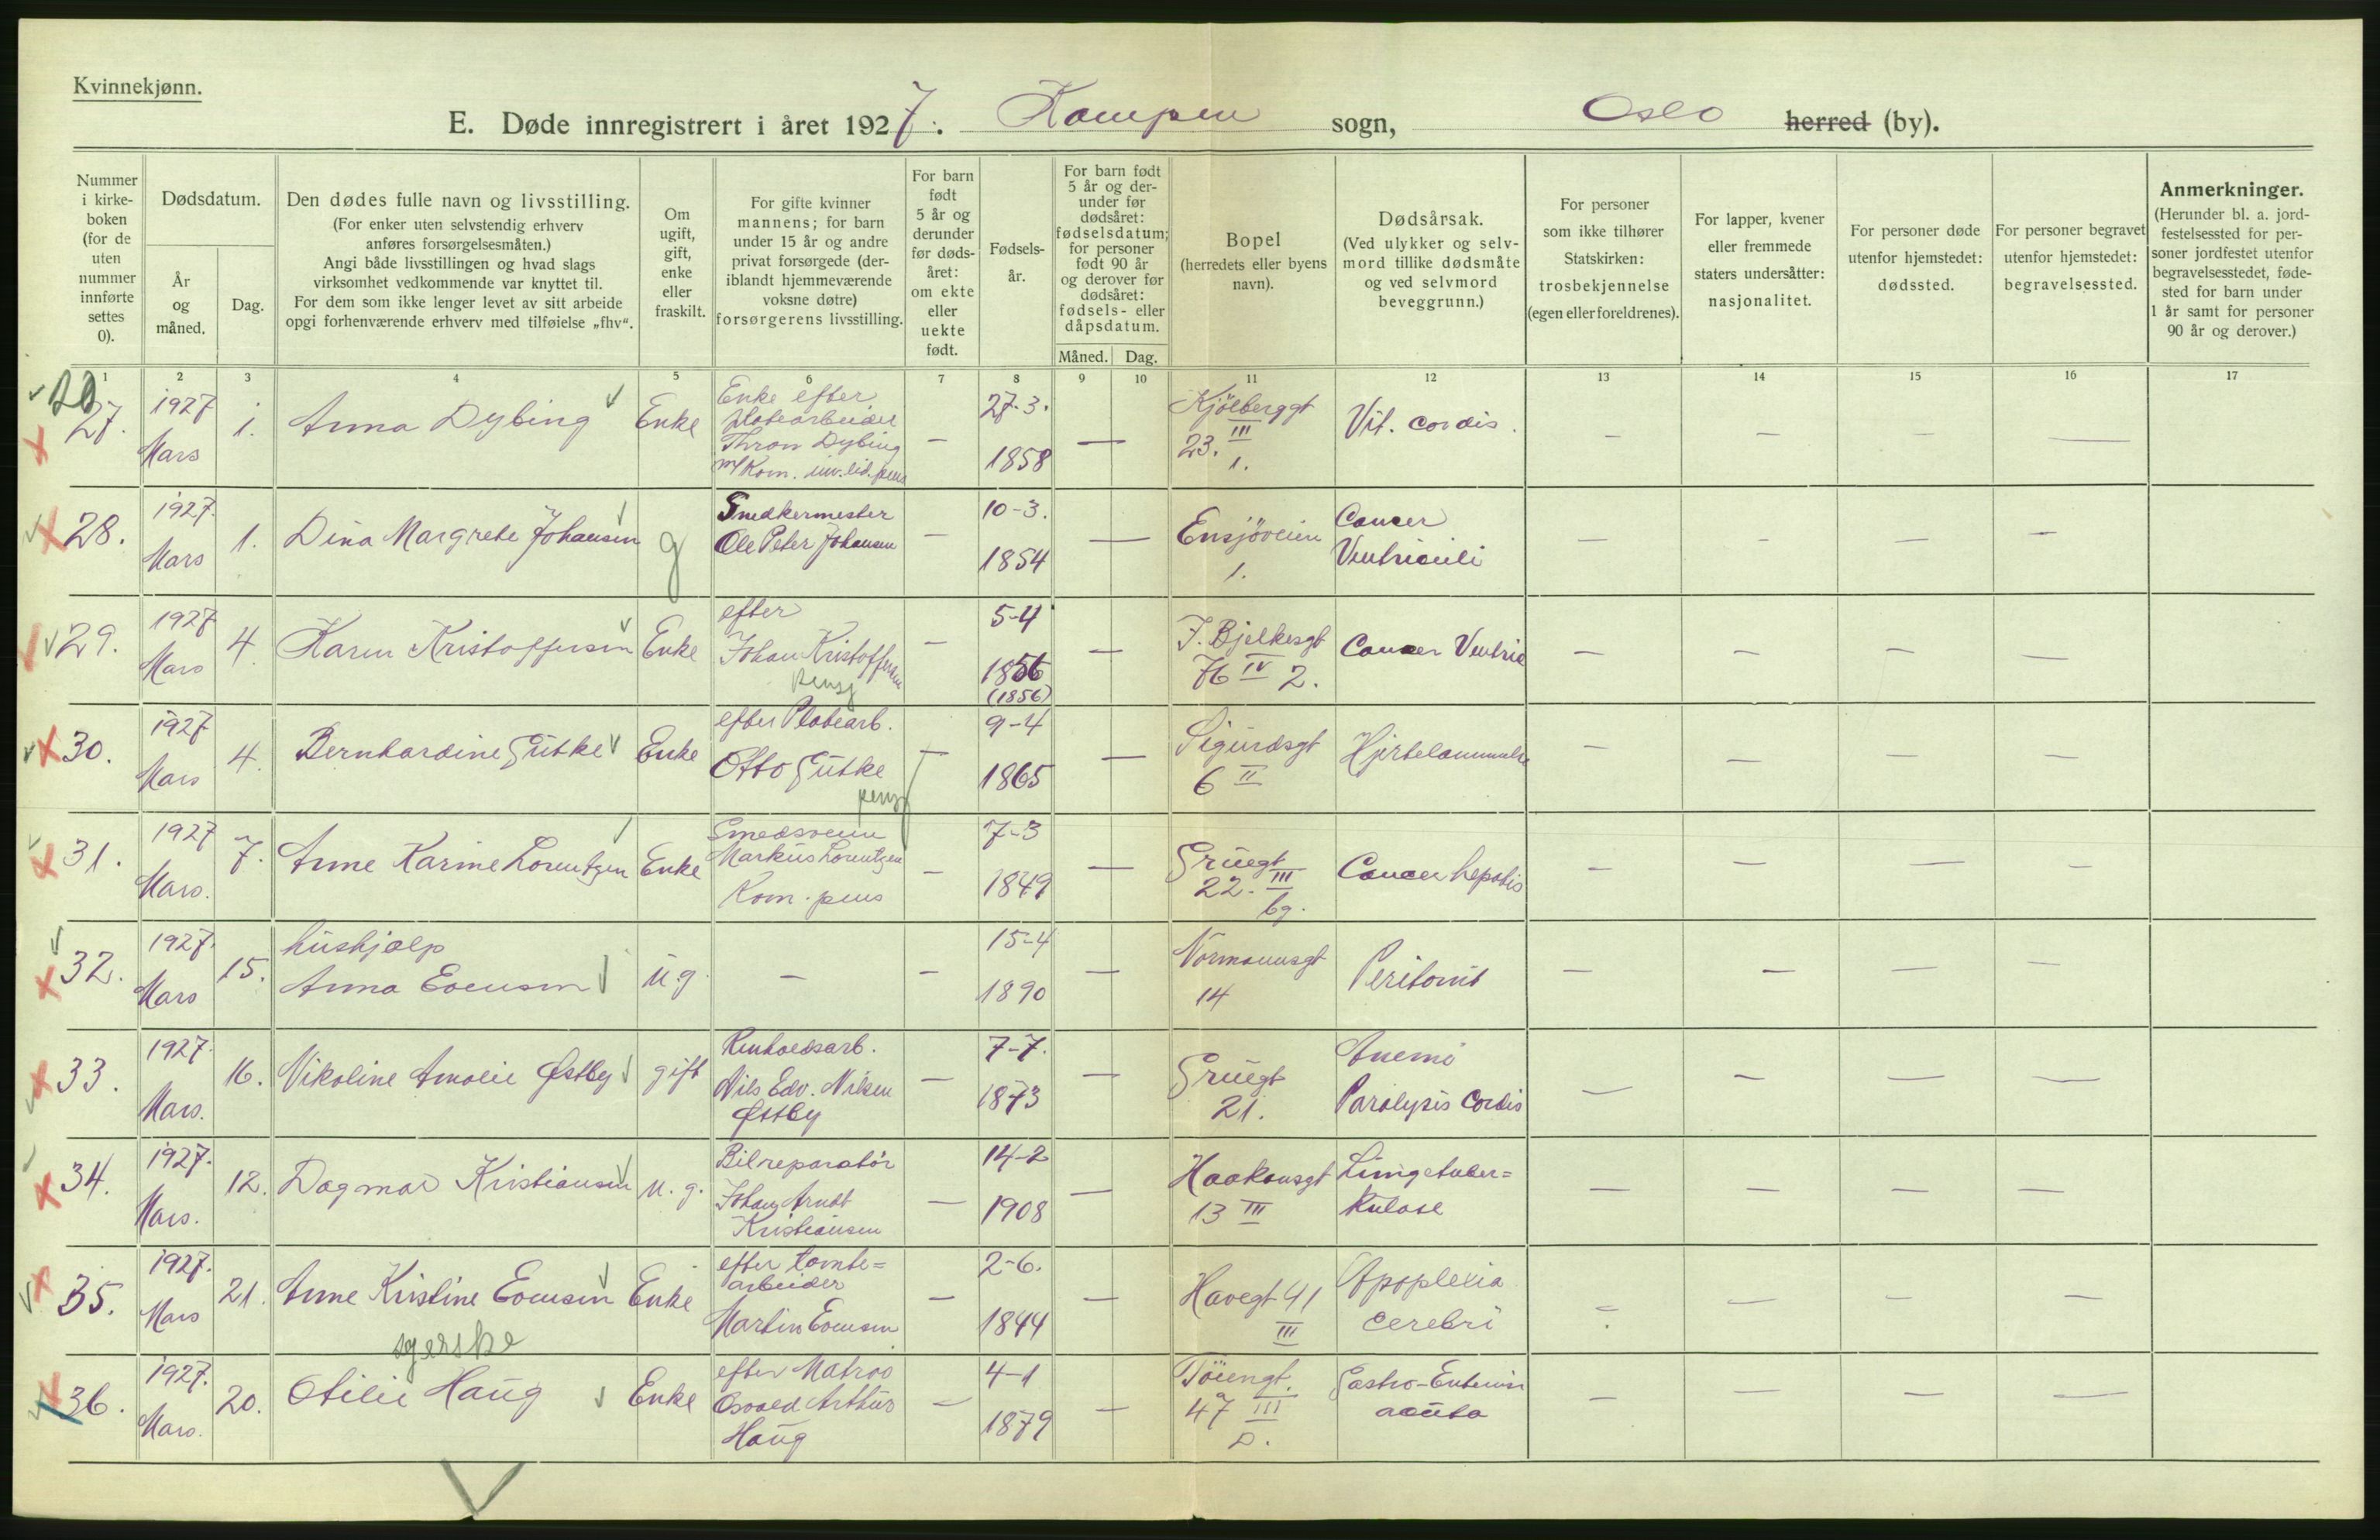 Kvinnekjønn.
E. Døde innregistrert i året 1927. Kampen sogn, Oslo herred (by).
Nummer i kirke-boken (for de uten nummer innførte settes 0).
Dødsdatum.
År og måned.
Dag.
Den dødes fulle navn og livsstilling.
(For enker uten selvstendig erhverv
anføres forsørgelsesmåten.)
Angi både livsstillingen og hvad slags
virksomhet vedkommende var knyttet til.
For dem som ikke lenger levet av sitt arbeide
opgi forhenværende erhverv med tilføielse „fhv“.
Om ugift, gift, enke eller fraskilt.
For gifte kvinner
mannens; for barn
under 15 år og andre
privat forsørgede (der-
iblandt hjemmeværende
voksne døtre)
forsørgerens livsstilling.
For barn født 5 år og derunder før døds-året: om ekte eller uekte født.
Fødsels-år.
For barn født
5 år og der-
under før
dødsåret:
fødselsdatum;
for personer
født 90 år
og derover før
dødsåret:
fødsels- eller
dåpsdatum.
Måned. Dag.
Bopel
(herredets eller byens
navn).
Dødsårsak.
(Ved ulykker og selv-
mord tillike dødsmåte
og ved selvmord
beveggrunn.)
For personer
som ikke tilhører
Statskirken:
trosbekjennelse
(egen eller foreldrenes).
For lapper, kvener
eller fremmede
staters undersåtter:
nasjonalitet.
For personer døde
utenfor hjemstedet:
dødssted.
For personer begravet
utenfor hjemstedet:
begravelsessted.
Anmerkninger.
(Herunder bl. a. jord-
festelsessted for per-
soner jordfestet utenfor
begravelsesstedet,føde-
sted for barn under
1 år samt for personer
90 år og derover.)
1 2 3 4 5 6 7 8 9 10 11 12 13 14 15 16 17
27. 1927 Mars 1. Anna Dybing Enke Enke efter platearbeider Thron Dybing m/ Kom. inv.lid. pens — 27-3. 1858 — Kjölberggt 23. III 1. Vit. cordis. — — — —
28. 1927. Mars 1. Dina Margrete Johansen g Snedkermester Ole Peter Johansen — 10-3. 1854 — Ensjöveien 1. Cancer Ventriculi — - — —
29. 1927 Mars 4. Karen Kristoffersen Enke efter Johan Kristoffersen pensj — 5-4 1856 (1856) — J. Bjelkesgt 76 IV 2. Cancer Ventric — — — —
30. 1927 Mars 4. Bernhardine Gütke Enke efter Platearb. Otto Gütke pensj — 9-4 1865 — Sigurdsgt 6 II Hjertelammelse — — — —
31. 1927 Mars. 7. Anne Karine Lorentzen Enke Smedsvenn Markus Lorentzen Kom. pens — 7-3 1849 — Grüegt 22. III bg. Cancer hepatis — — — —
32. 1927. Mars 15. hushjælp Anna Evensen u.g. — — 15-4 1890 — Normannsgt 14 Peritonit — — — —
33. 1927. Mars. 16. Nikoline Amalie Østby gift Renholdsarb. Nils Edv. Nilsen Østby — 7-7. 1873 — Grüegt 21. Anemi Paralysis Cordis — — — —
34. 1927. Mars. 12. Dagmar Kristiansen u.g. Bilreparatør Johan Arndt Kristiansen — 14-2 1908 — Haakonsgt 13 III Lungetuber=kulose — — — —
35. 1927. Mars 21. Anne Kristine Evensen Enke efter tomte=arbeider Martin Evensen — 2-6. 1844 — Havegt 41 III Apoplexia cerebri — — — —
36. 1927. Mars. 20. syerske Otilie Haug Enke efter Matros Osvald Arthur Haug — 4-1 1879 — Töiengt. 47 III Gastro-Enterit acuta — — — —